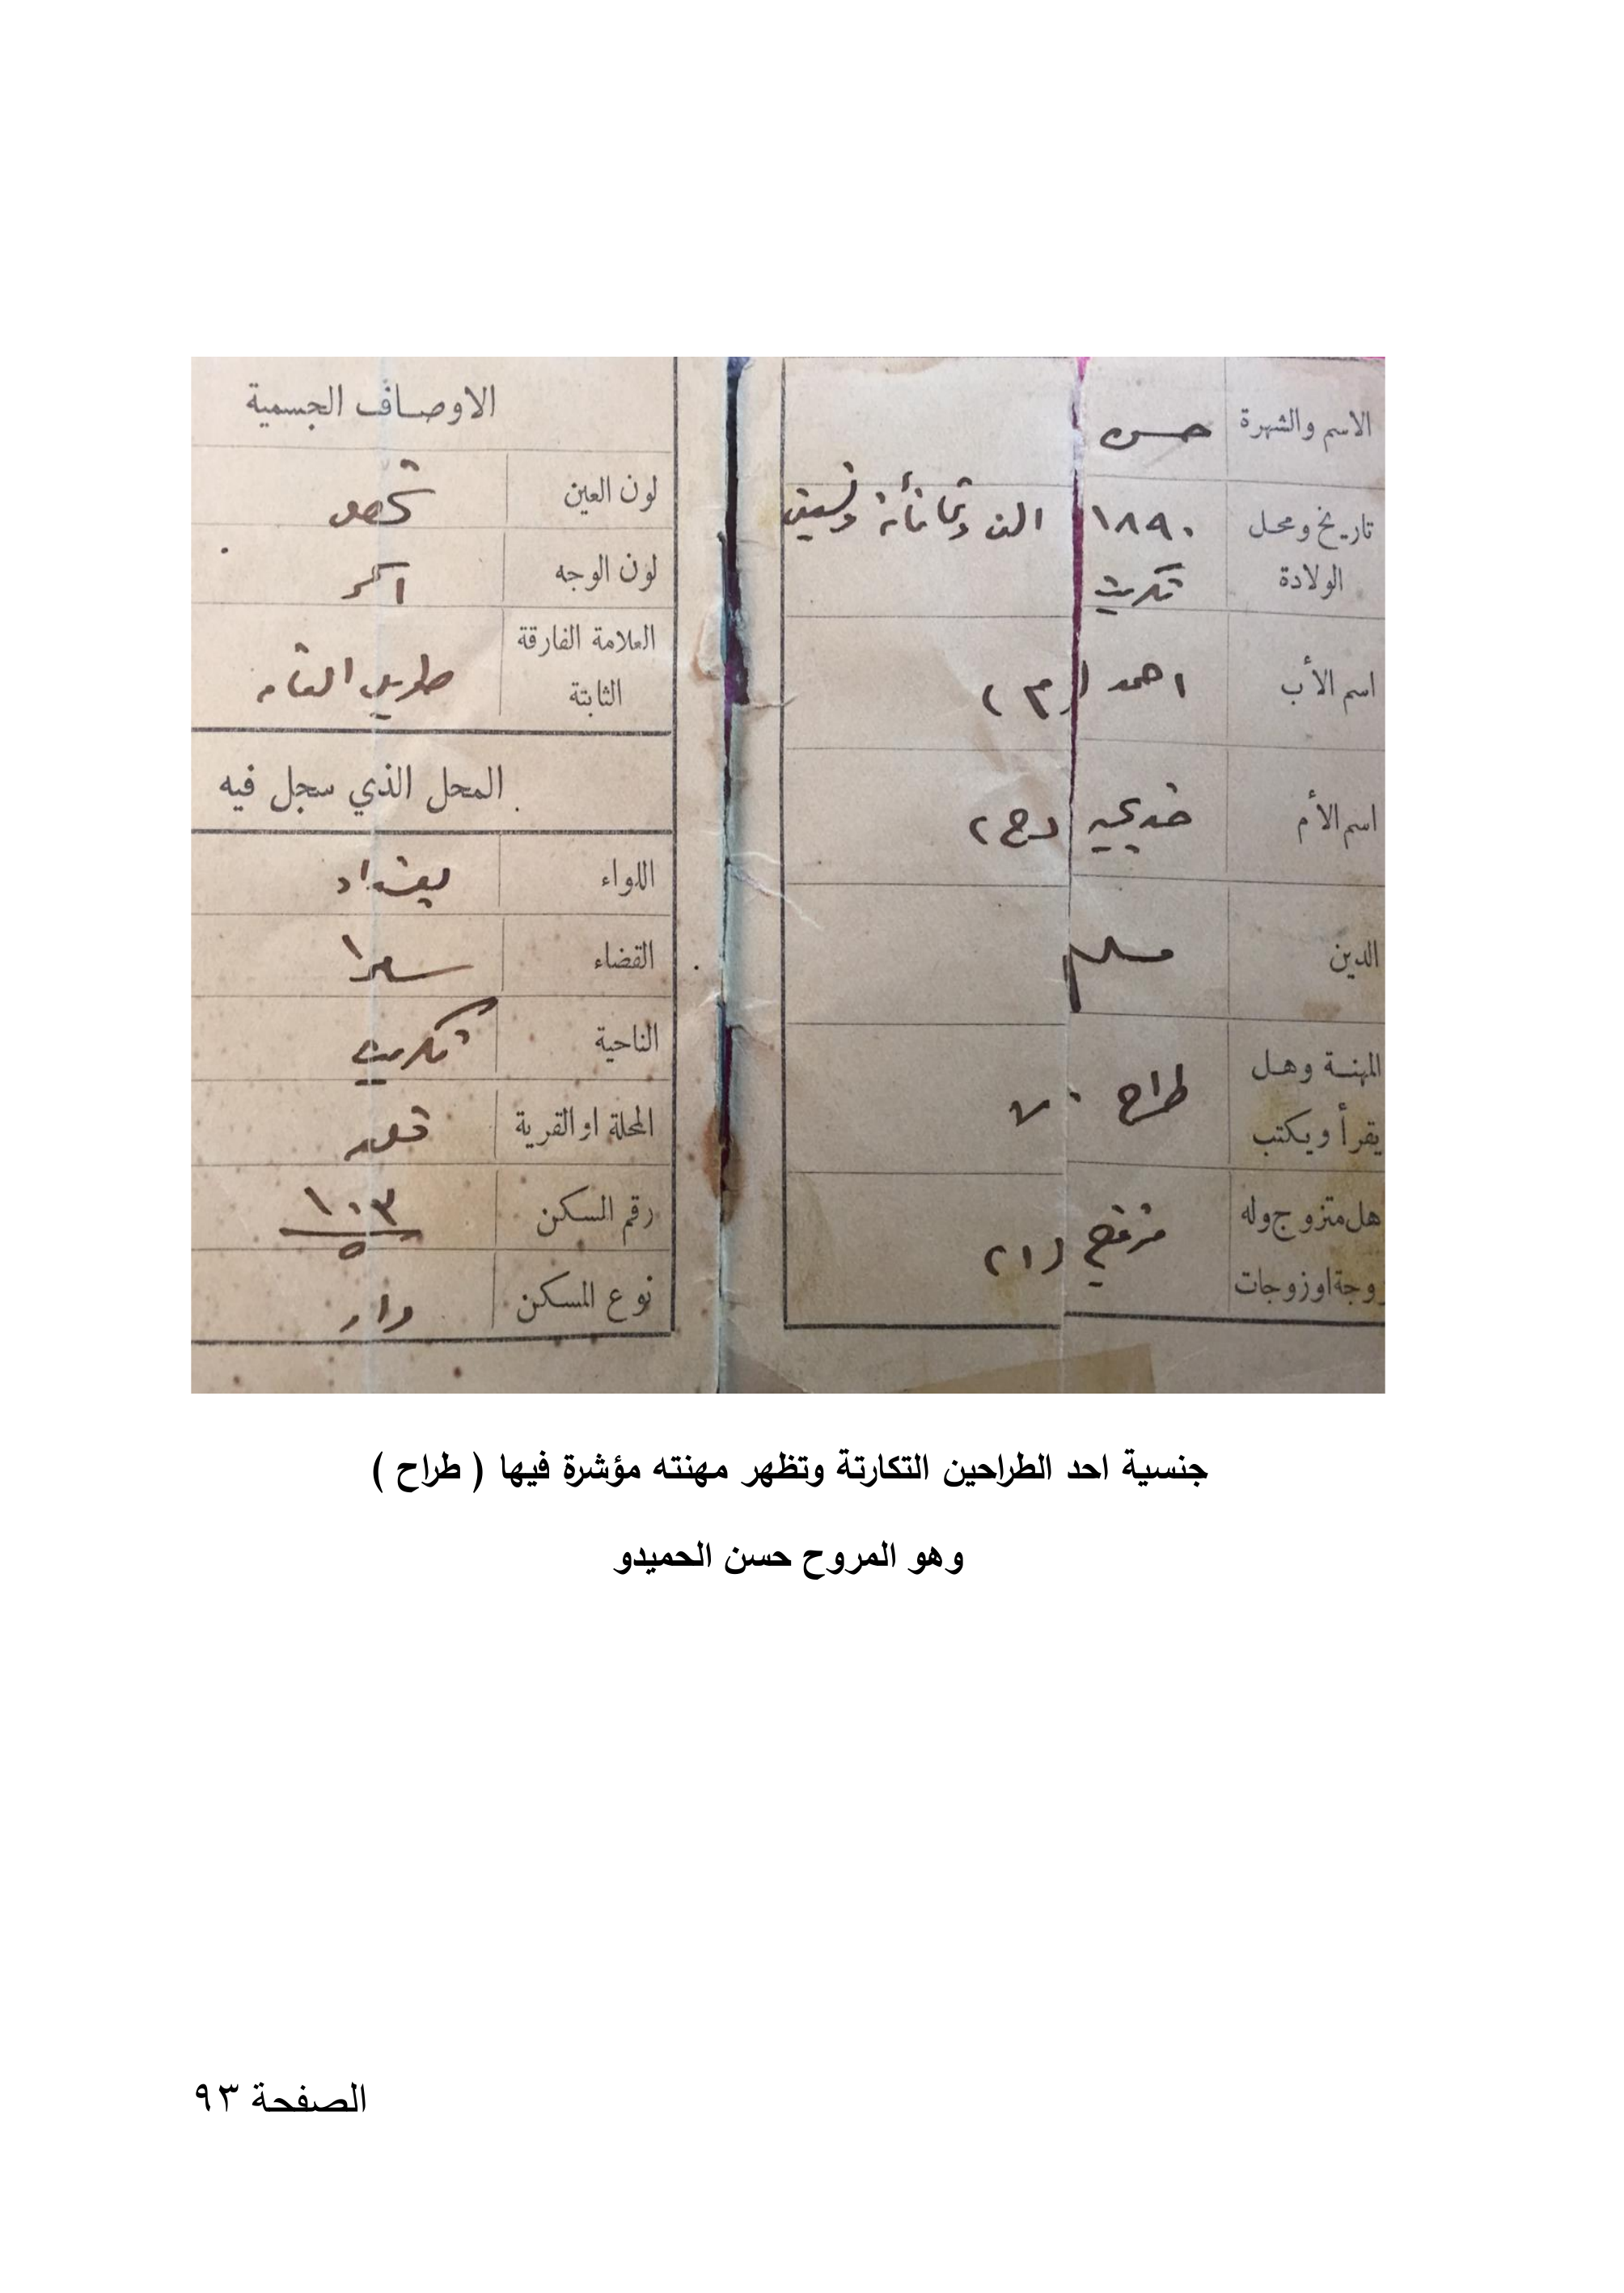 الاسم والشهرة حسن
تاريخ ومحل ١٨٩٠ الف وثمانمائة وتسعين
الولادة تكريت
اسم الأب احمد (م)
اسم الأم خديجه (ح)
الدين مسلم
المهنة وهل طراح . لا
يقرأ ويكتب
هل متزوج وله متزوج (١)
زوجة او زوجات
الاوصاف الجسمية
لون العين
لون الوجه اسمر
العلامة الفارقة طويل القامه
الثابتة
المحل الذي سجل فيه
اللواء بغداد
القضاء سامرا
الناحية تكريت
المحلة او القرية
رقم المسكن ١٠٣
٥
نوع المسكن دار
جنسية احد الطراحين التكارتة وتظهر مهنته مؤشرة فيها ( طراح )
وهو المروح حسن الحميدو
الصفحة ٩٣